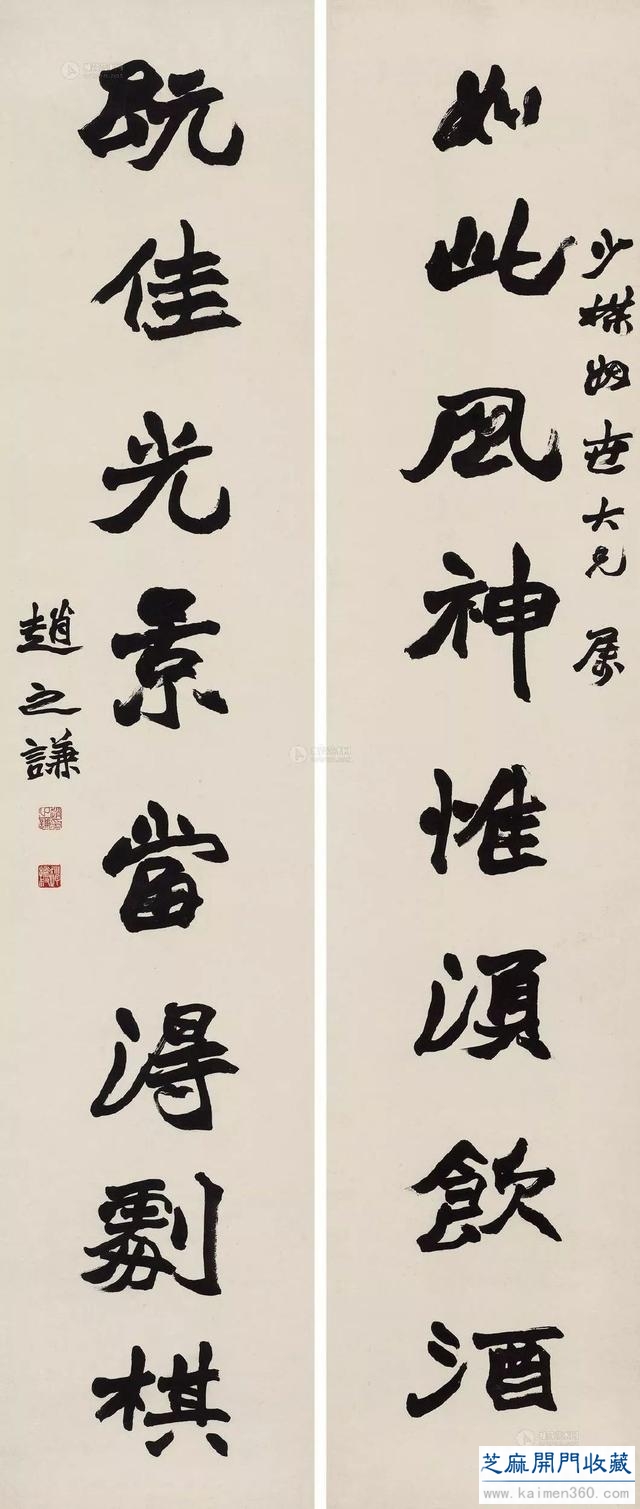 少棣姻世大兄 属
如此风神惟須飲酒
既佳光景當得劇棋
趙之謙
芝麻開門收藏
www.kaimen360.com